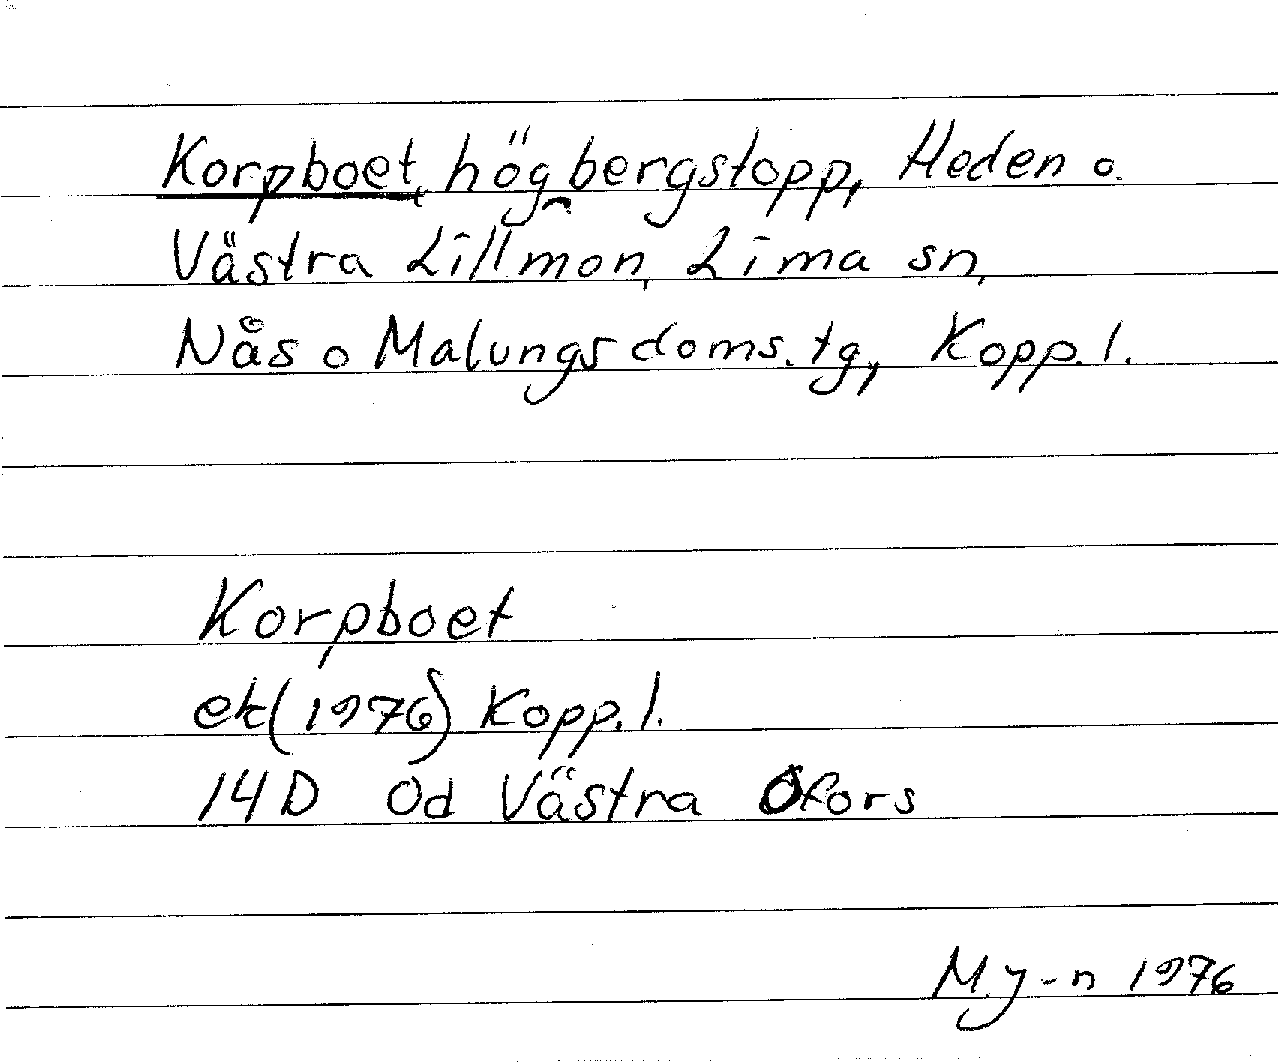 Korpboet, hög bergstopp, Heden o.
Västra Lillmon, Lima sn,
Nås o Malungs doms.tg, Kopp.l.
Korpboet
ek (1976) Kopp.l.
14D 0d Västra Ofors
M.y-n 1976